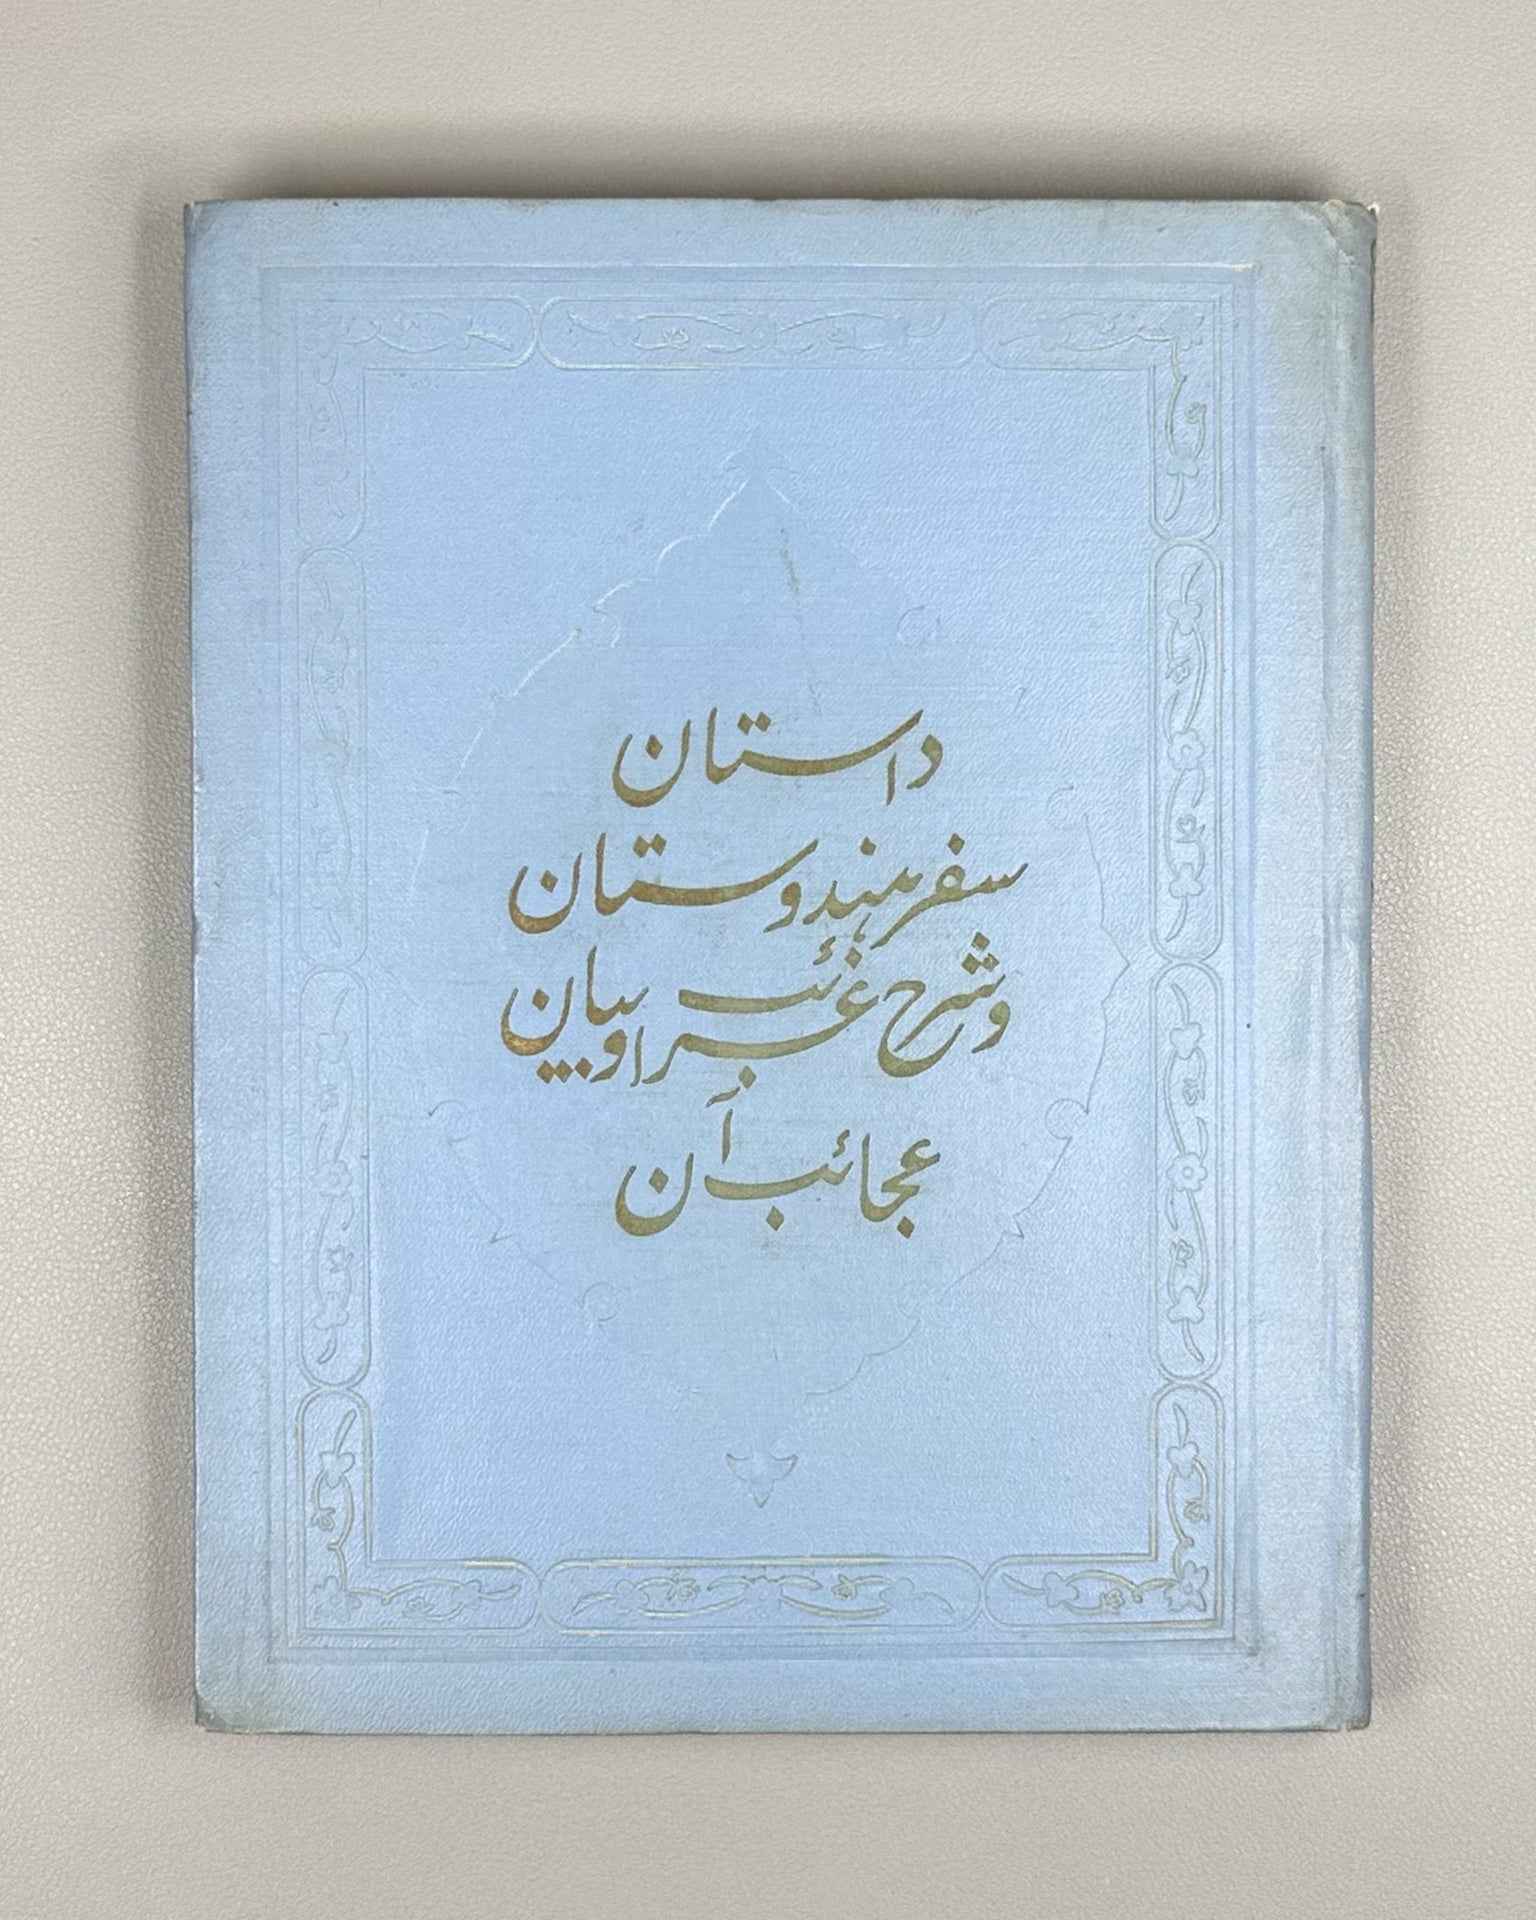 داستان
سفر هندوستان
و شرح غرائب و بیان
عجائب آن